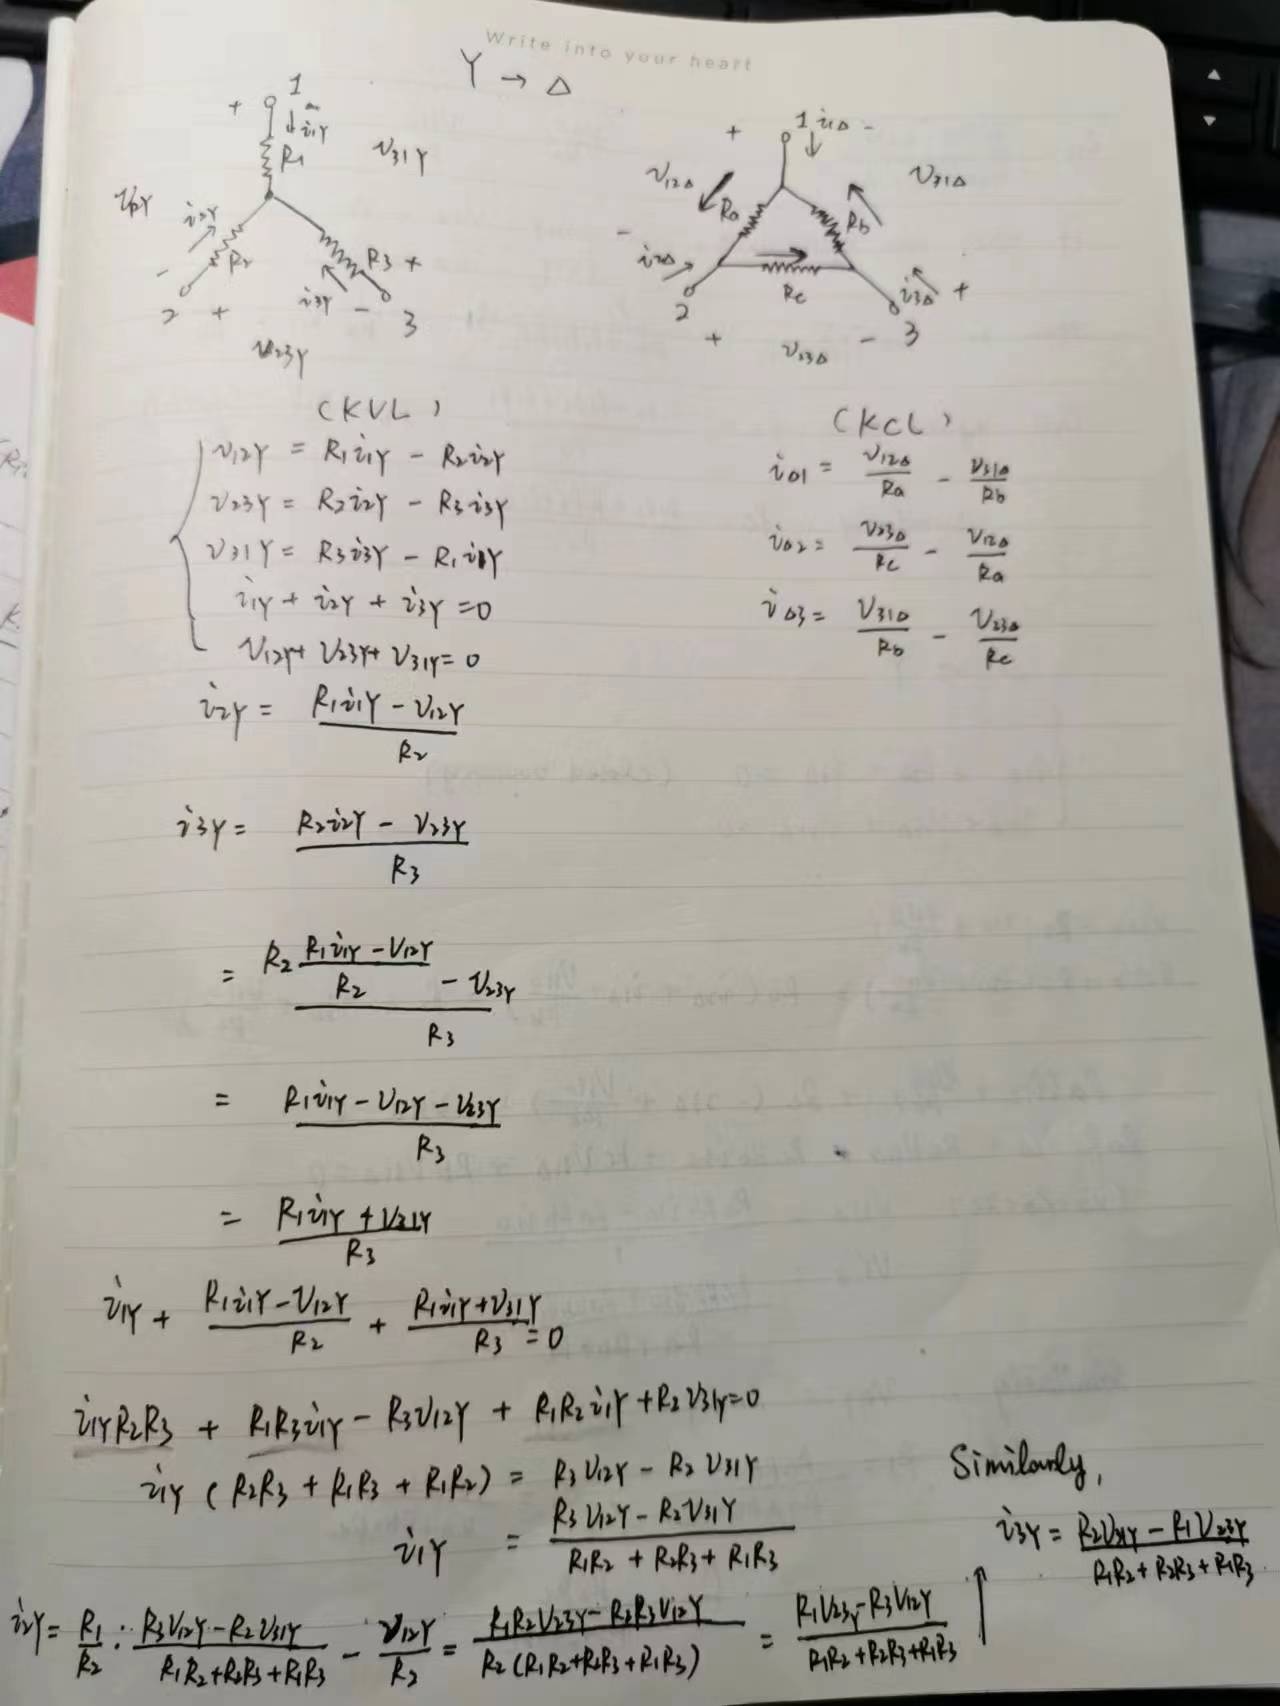 Write into your heart
Y → Δ
1
+
i1Y
R1
v31Y
v12Y
i2Y
R2
R3 +
-
i3Y
-
2
+
3
v23Y
1 i1Δ -
+
v12Δ
v31Δ
Ra
Rb
-
i2Δ
Rc
i3Δ +
2
+
v23Δ
- 3
(KVL)
v12Y = R1i1Y - R2i2Y
v23Y = R2i2Y - R3i3Y
v31Y = R3i3Y - R1i1Y
i1Y + i2Y + i3Y = 0
v12Y + v23Y + v31Y = 0
(KCL)
iΔ1 = v12Δ/Ra - v31Δ/Rb
iΔ2 = v23Δ/Rc - v12Δ/Ra
iΔ3 = v31Δ/Rb - v23Δ/Rc
i2Y = (R1i1Y - v12Y)/R2
i3Y = (R2i2Y - v23Y)/R3
= (R2 (R1i1Y - v12Y)/R2 - v23Y)/R3
= (R1i1Y - v12Y - v23Y)/R3
= (R1i1Y + v31Y)/R3
i1Y + (R1i1Y - v12Y)/R2 + (R1i1Y + v31Y)/R3 = 0
i1YR2R3 + R1R3i1Y - R3v12Y + R1R2i1Y + R2v31Y = 0
i1Y (R2R3 + R1R3 + R1R2) = R3v12Y - R2v31Y
i1Y = (R3v12Y - R2v31Y)/(R1R2 + R2R3 + R1R3)
Similarly,
i3Y = (R2v31Y - R1v23Y)/(R1R2 + R2R3 + R1R3)
i2Y = R1/R2 · (R3v12Y - R2v31Y)/(R1R2 + R2R3 + R1R3) - v12Y/R2 = (R1R2v23Y - R2R3v12Y)/(R2(R1R2 + R2R3 + R1R3)) = (R1v23Y - R3v12Y)/(R1R2 + R2R3 + R1R3)